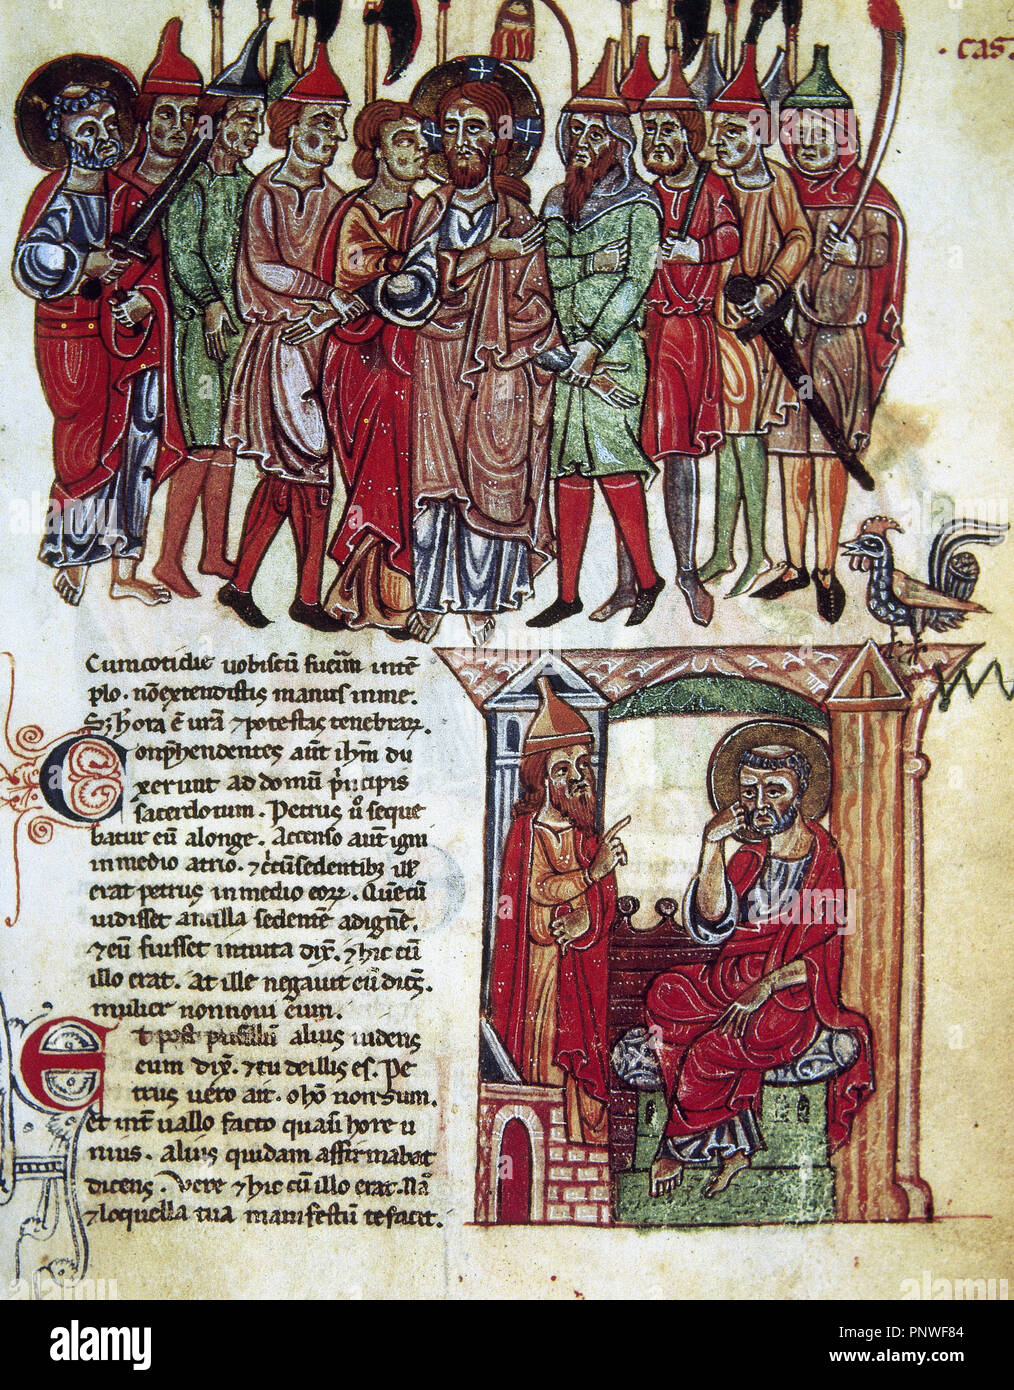 · cas
Cum cotidie vobiscũ fuerim in tẽ
plo. nõ extendistis manus in me.
S; hora ẽ ura̅ ⁊ potestas tenebrar̃.
Conp̃hendentes aut̃ ihm̃ du
xerunt ad domũ p̃ncipis
sacerdotum. Petrus u̅o seque
batur eũ a longe. Accenso aut̃ igni
in medio atrio. ⁊ c̃cũsedentib; ill'
erat petrus in medio eor̃. Quẽ cũ
vidisset ancilla sedentẽ ad ignẽ.
⁊ eũ fuisset intuita dix̃. ⁊ hic cũ
illo erat. At ille negavit eũ dicẽs.
mulier non novi eum.
Et post pusillũ alius videns
eum dix̃. ⁊ tu de illis es. Pe
trus vero ait. o hõ non sum.
Et int̃vallo facto quasi hore u
nius. alius quidam affirmabat
dicens. vere ⁊ hic cũ illo erat. Nã
⁊ loquella tua manifestũ te facit.
alamy
Image ID: PNWF84
www.alamy.com